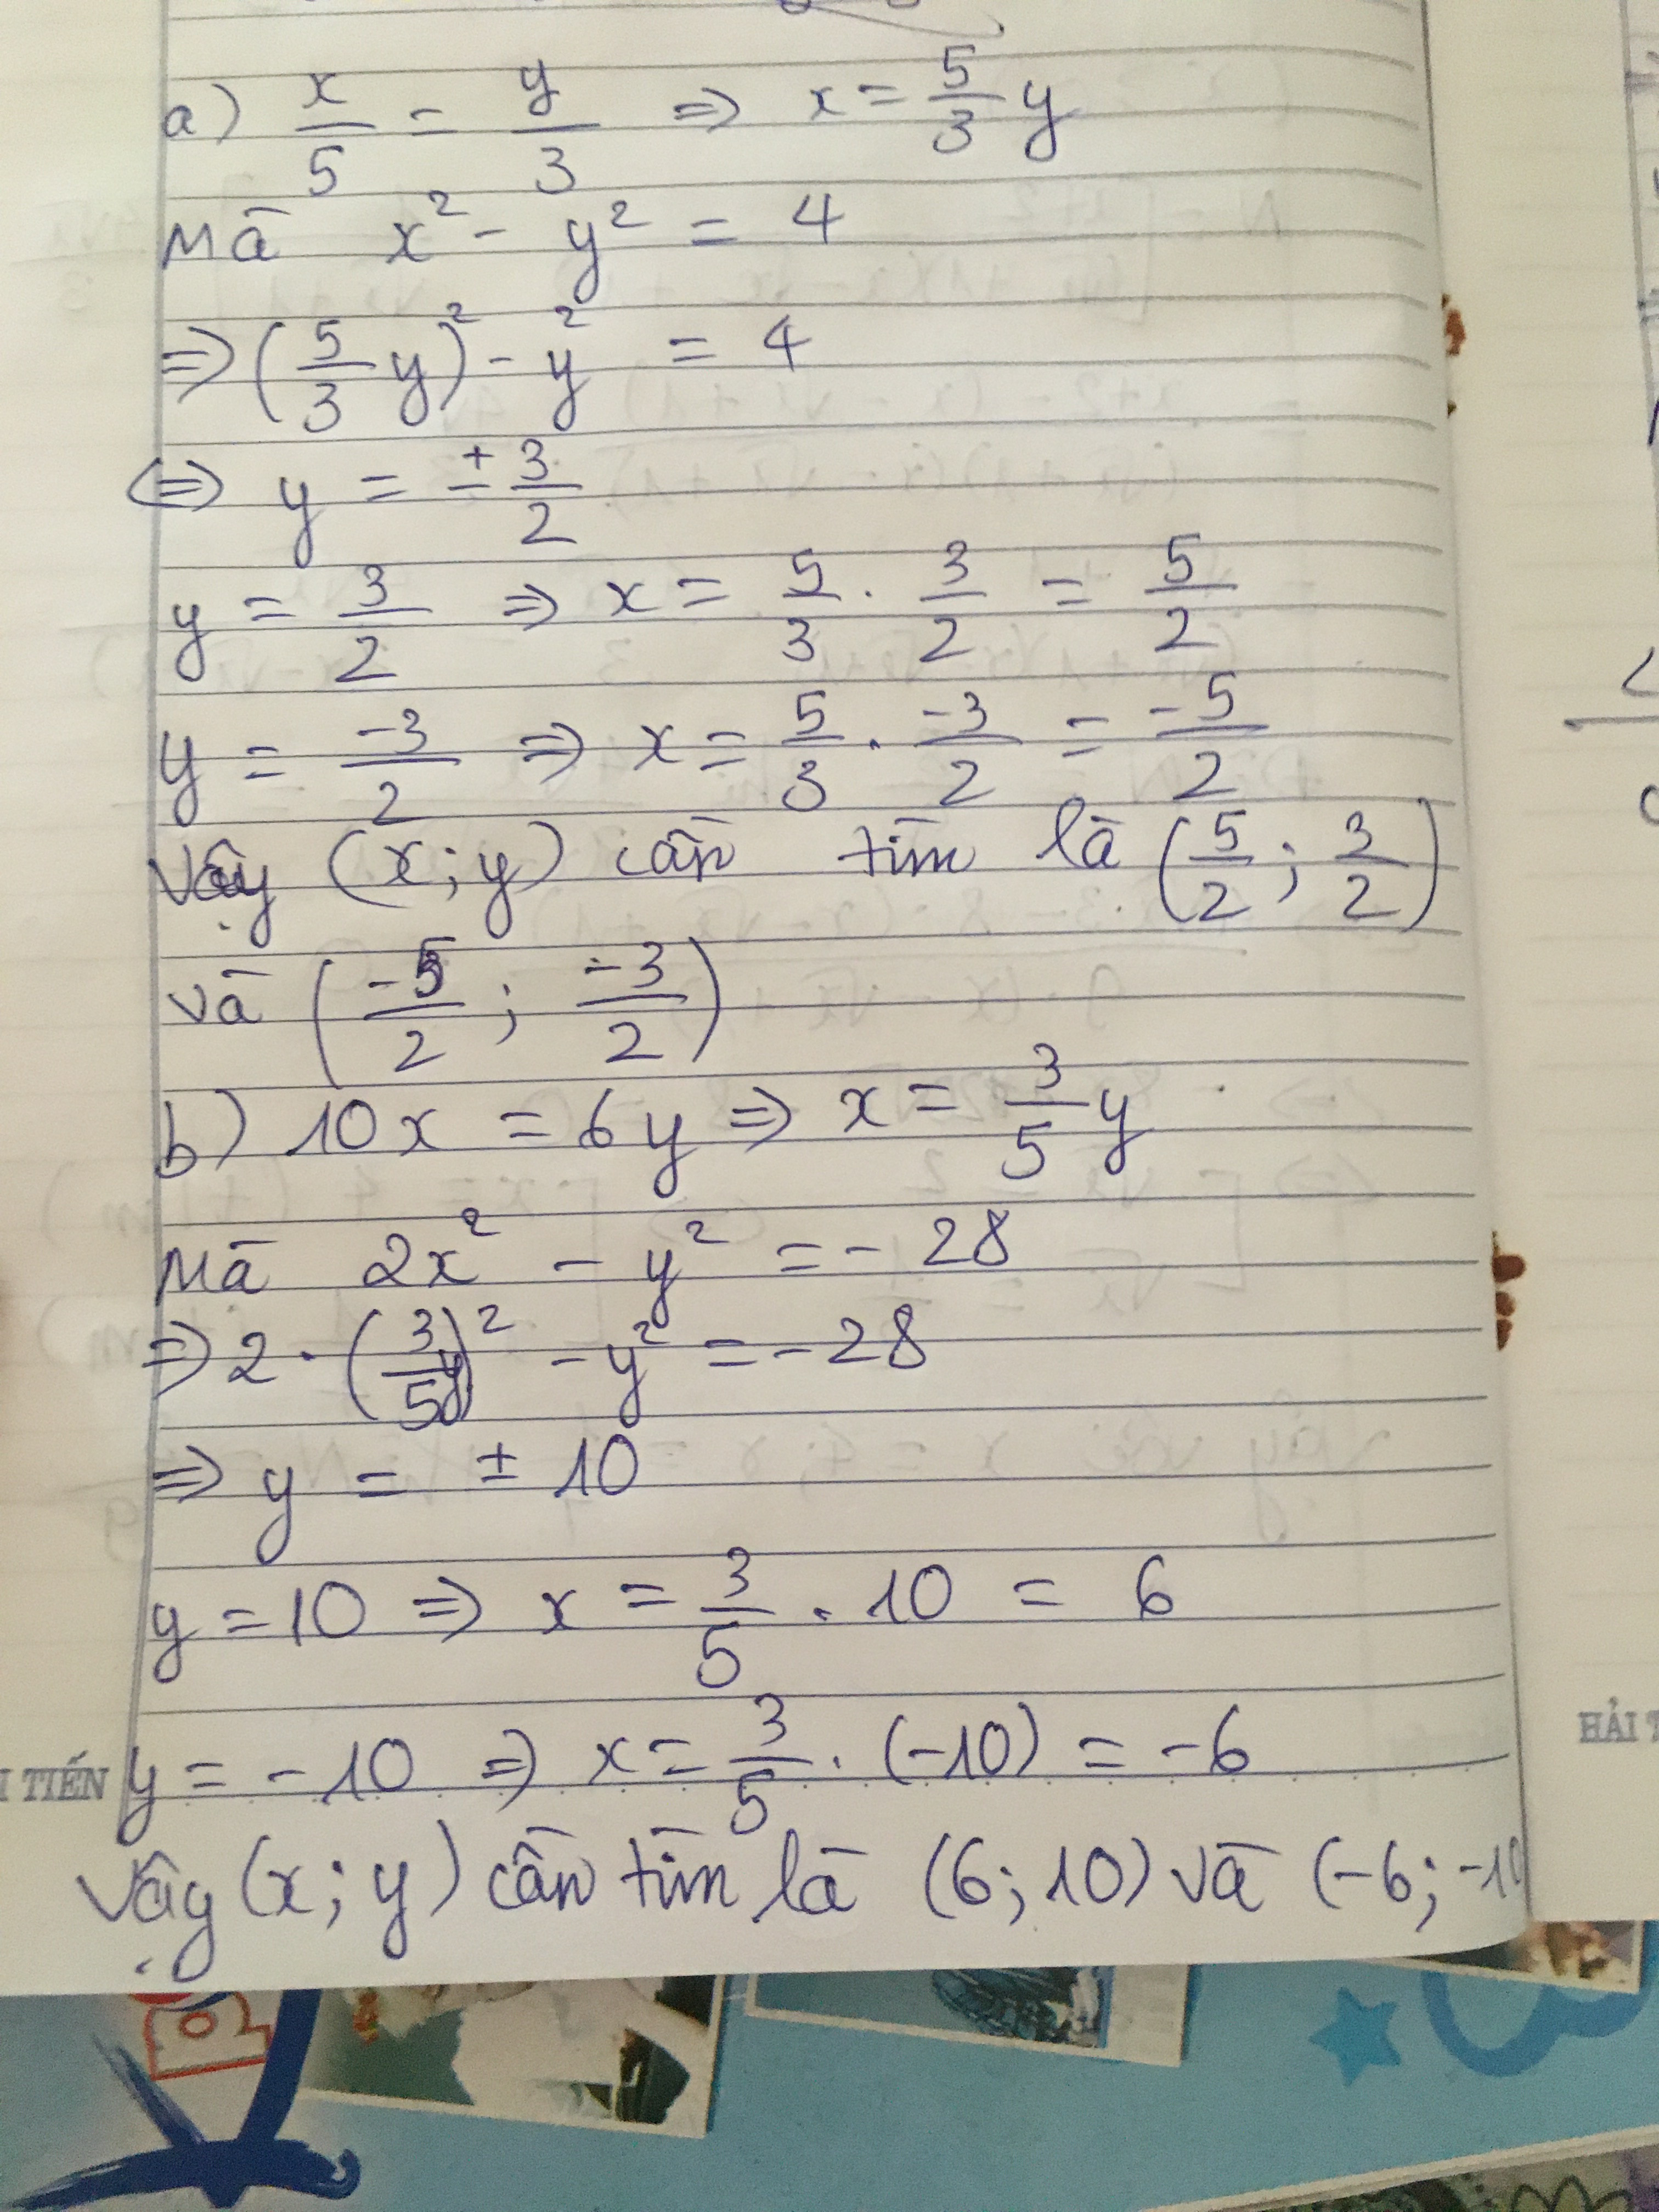 a) x/5 = y/3 => x = 5/3 y
Mà x² - y² = 4
=> (5/3 y)² - y² = 4
<=> y = ± 3/2
y = 3/2 => x = 5/3 . 3/2 = 5/2
y = -3/2 => x = 5/3 . -3/2 = -5/2
Vậy (x; y) cần tìm là (5/2 ; 3/2)
và (-5/2 ; -3/2)
b) 10x = 6y => x = 3/5 y
Mà 2x² - y² = -28
=> 2 . (3/5 y)² - y² = -28
=> y = ± 10
y = 10 => x = 3/5 . 10 = 6
y = -10 => x = 3/5 . (-10) = -6
Vậy (x; y) cần tìm là (6; 10) và (-6; -10
I TIẾN
HẢI T